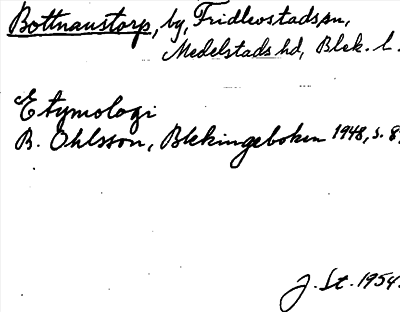 Bottnaustorp, by, Fridlevstads sn,
Medelstads hd, Blek. l.
Etymologi
B. Ohlsson, Blekingeboken 1948, s. 8
J. St. 1954.